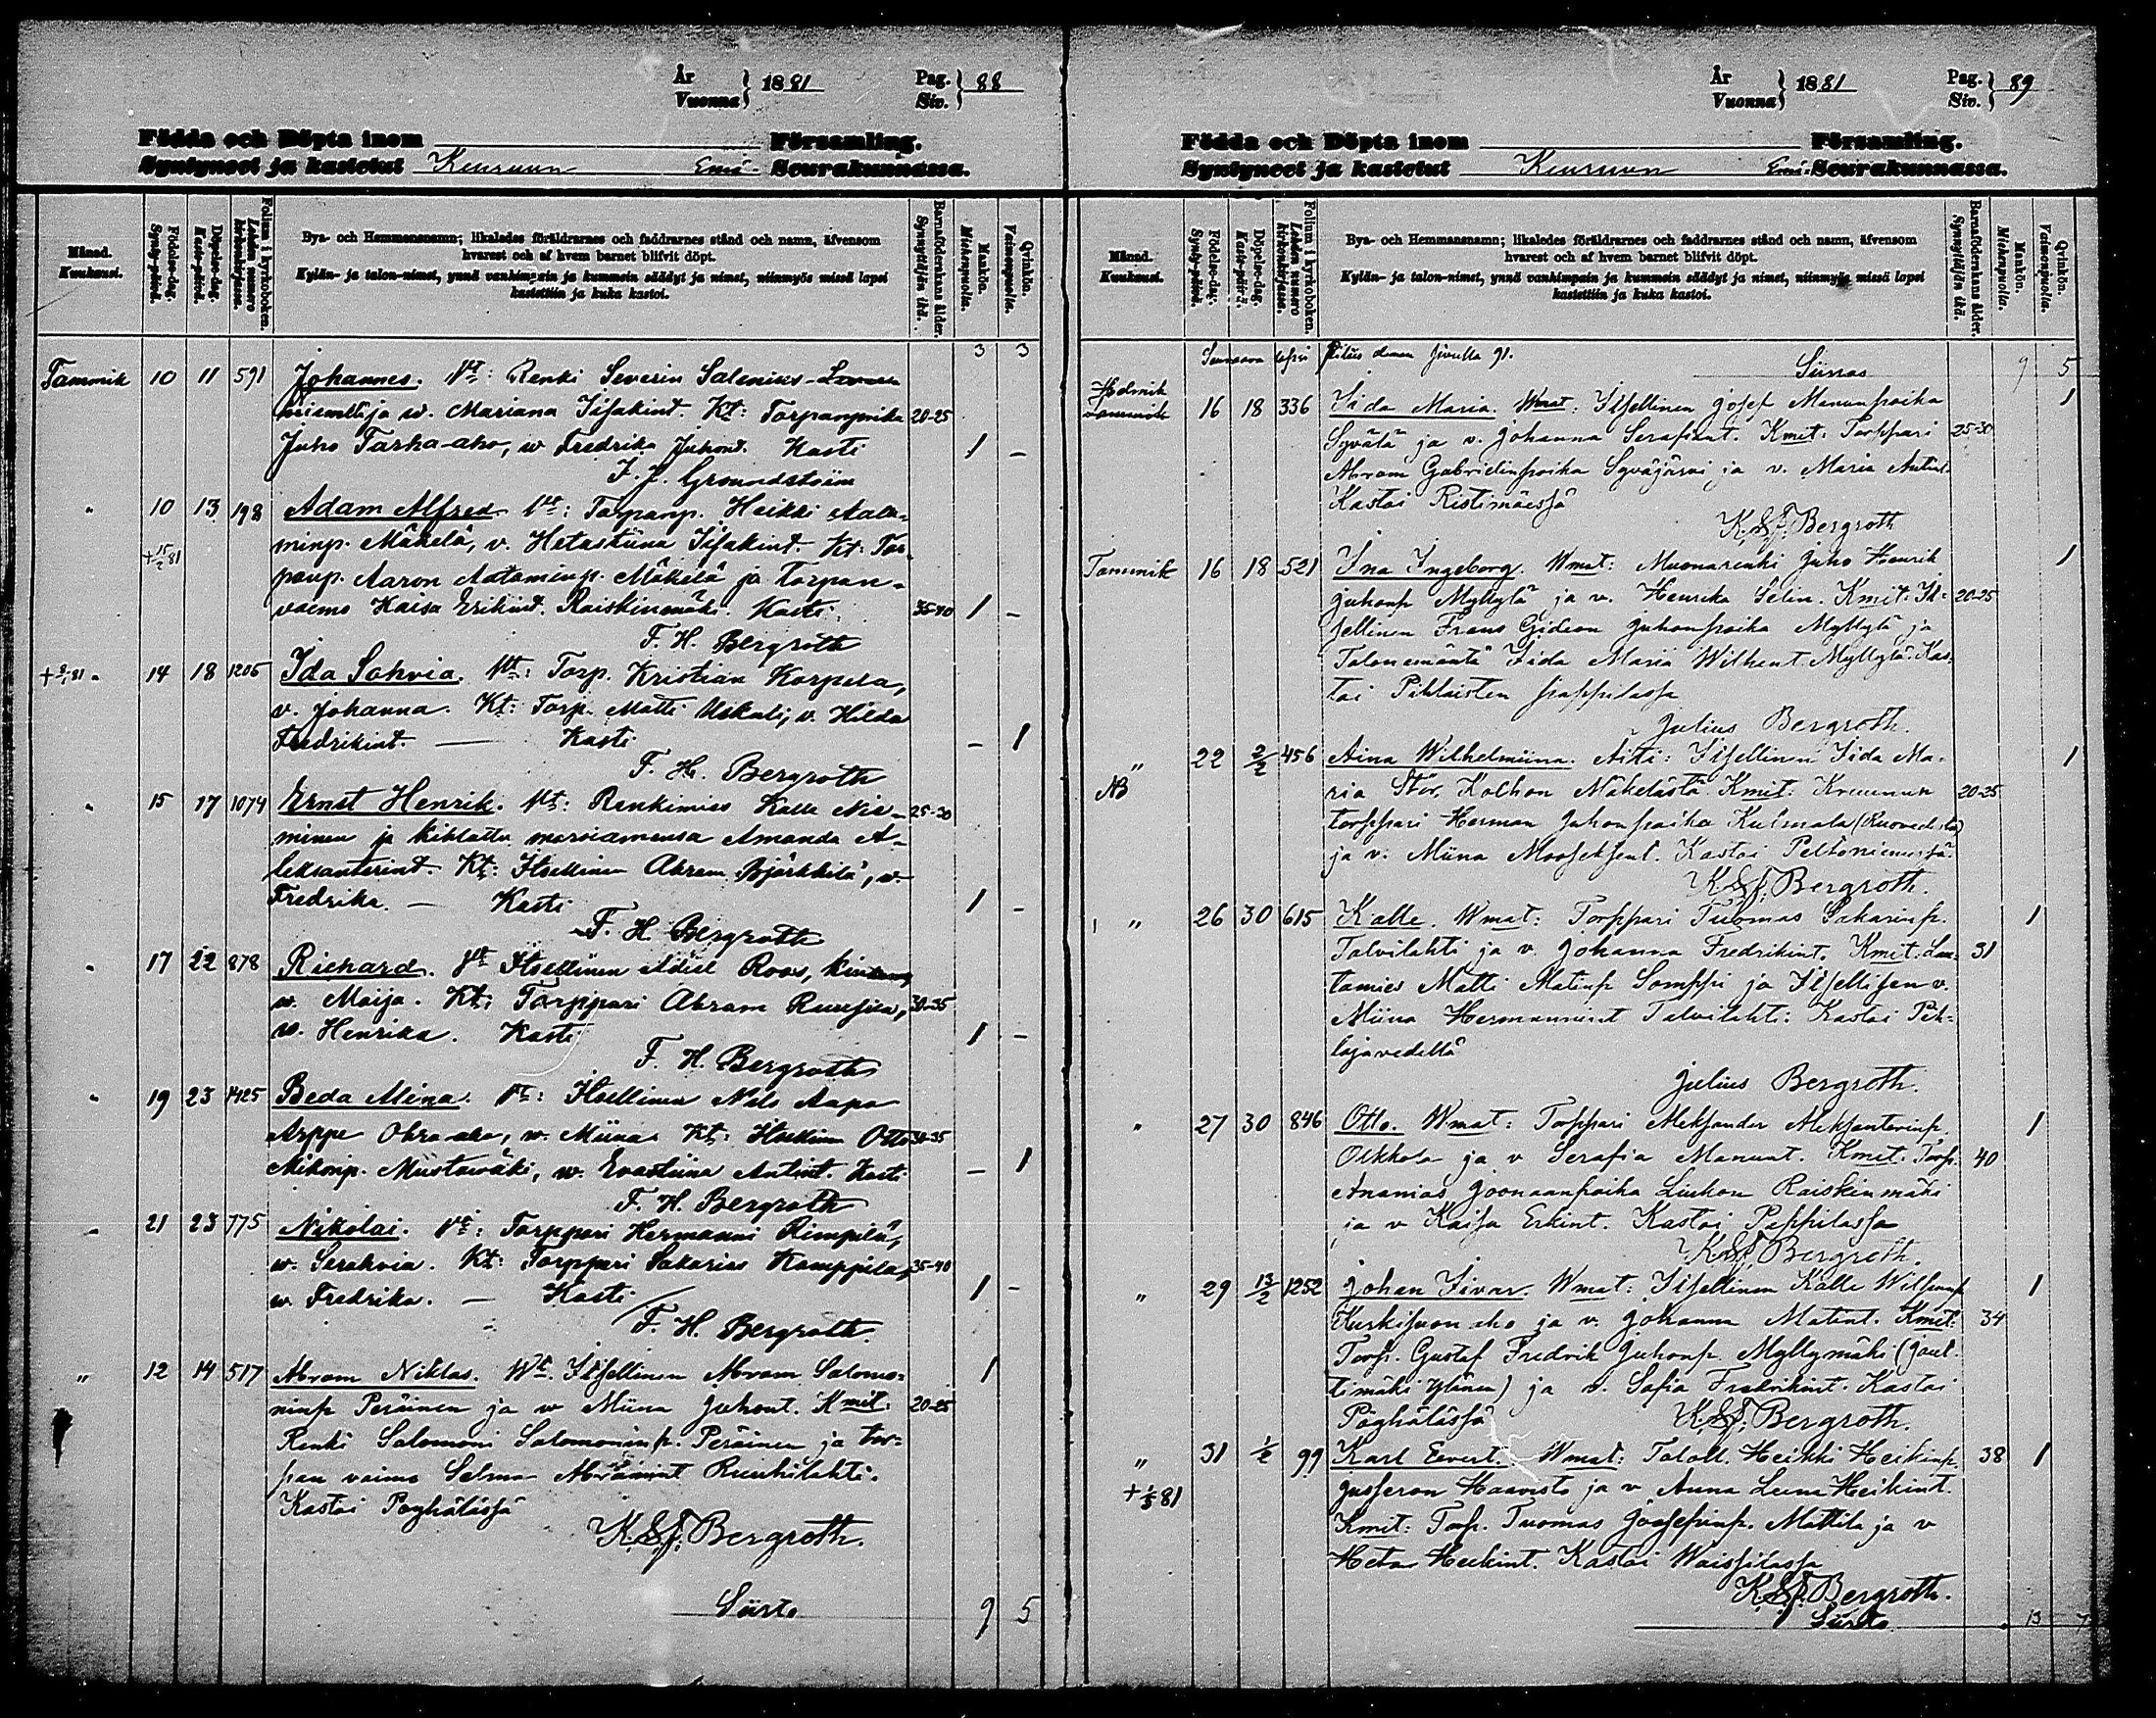 År
Vuonna } 1881 Pag.
Siv. } 88
Födda och Döpta inom Församling.
Syntyneet ja kastetut Keuruun Emä- Seurakunnassa.
Månad.
Kuukausi.
Födelse-dag.
Synty-päivä.
Döpelse-dag.
Kaste-päivä.
Folium i kyrkoboken.
Lehden numero kirkonkirjassa.
Bya- och Hemmansnamn; likaledes föräldrarnes och faddrarnes stånd och namn, äfvensom
hvarest och af hvem barnet blifvit döpt.
Kylän- ja talon-nimet, ynnä vanhimpain ja kummein säädyt ja nimet, niinmyös missä lapsi
kastettiin ja kuka kastoi.
Barnaföderskans ålder.
Synnyttäjän ikä.
Mankön.
Miehenpuolia.
Qvinkön.
Vaimonpuolia.
3 3
Tammik 10 11 591 Johannes. Vt: Renki Severin Salenius
w. Mariana Iisakint. Kt: 20-25
Juho Tarha-aho, w Fredrika Juhont. Kasti 1 –
F. J. Groundstöim
" 10 13 198 Adam Alfred. Vt: Torpanp. Heikki Aata-
+ 15/2 81 minp. Mäkelä, v. Hetastiina Iisakint. Kt: Tor-
panp. Aaron Aataminp. Mäkelä ja Torpan-
vaimo Kaisa Erikint. Raiskinmäki. Kasti 35-40 1 –
F. H. Bergroth
" 14 18 1206 Ida Sohvia. Vt: Torp. Kristian Korpela,
v. Johanna. Kt: Torp. Matti Uskali, v. Hilda
Fredrikint. — Kasti – 1
F. H. Bergroth
" 15 17 1074 Ernst Henrik. Vt: Renkimies Kalle Nie- 25-30
minen ja kihlattu morsiamensa Amanda A-
leksanterint. Kt: Itsellinen Abram Björkkilä, w.
Fredrika. — Kasti 1 –
F. H. Bergroth
" 17 22 878 Richard. Vt Itsellinen Adiel Roos,
w. Maija. Kt: Torppari Abram Ruusila, 30-35
w. Henrika. Kasti 1 –
F. H. Bergroth
" 19 23 1425 Beda Miina. Vt: Itsellinen Nils Aapo
Arppe Ohra-aho, w. Miina. Kt: Itsellinen Otto 30-35
Mikonp. Mustamäki, w. Evastiina Antint. Kasti – 1
F. H. Bergroth
" 21 23 775 Nikolai. Vt: Torppari Hermanni Rimpilä,
w. Serahvia. Kt: Torppari Sakarias Kamppila, 35-40
w. Fredrika. — Kasti 1 –
F. H. Bergroth.
" 12 14 517 Abram Niklas. Wt. Itsellinen Abram Salomo- 1
ninp Peräinen ja w Miina Juhont. Kmit: 20-25
Renki Salomoni Salomoninp. Peräinen ja tor-
pan vaimo Selma Abramint Ruuhilahti.
Kastoi Pöyhölässä
K.S.J. Bergroth.
Siirto 9 5
År
Vuonna } 1881 Pag.
Siv. } 89
Födda och Döpta inom Församling.
Syntyneet ja kastetut Keuruun Emä- Seurakunnassa.
Månad.
Kuukausi.
Födelse-dag.
Synty-päivä.
Döpelse-dag.
Kaste-päivä.
Folium i kyrkoboken.
Lehden numero kirkonkirjassa.
Bya- och Hemmansnamn; likaledes föräldrarnes och faddrarnes stånd och namn, äfvensom
hvarest och af hvem barnet blifvit döpt.
Kylän- ja talon-nimet, ynnä vanhimpain ja kummein säädyt ja nimet, niinmyös missä lapsi
kastettiin ja kuka kastoi.
Barnaföderskans ålder.
Synnyttäjän ikä.
Mankön.
Miehenpuolia.
Qvinkön.
Vaimonpuolia.
Seuraava lapsi sivulla 91.
Siirros 9 5
Helmik
Tammik 16 18 336 Iida Maria. Wmat: Itsellinen Josef Manunpoika 1
Syvälä ja v. Johanna Serafiant. Kmit: Torppari 25-30
Abram Gabrielinpoika Syväjärvi ja v. Maria Antint.
Kastoi Ristimäessä
K.S.J. Bergroth
Tammik 16 18 521 Ina Ingeborg. Wmat: Muonarenki Juho Henrik 1
Juhonp Myllylä ja v. Henrika Selin. Kmit. It- 20-25
sellinen Frans Gideon Juhonpoika Myllylä ja
Talonemäntä Iida Maria Wilhent. Myllylä. Kas-
toi Pihlaisten pappilassa
Julius Bergroth.
" 22 2/2 456 Aina Wilhelmiina. Äiti: Itsellinen Iida Ma- 1
AB ria Stor, Kolhon Mäkelästä. Kmit: Kruunun 20-25
torppari Herman Juhonpoika Kulmala (Ruovedeltä)
ja v. Miina Mooseksent. Kastoi Peltoniemessä.
K.S.J. Bergroth.
" 26 30 615 Kalle. Wmat: Torppari Tuomas Sakarinp. 1
Talvilahti ja v. Johanna Fredrikint. Kmit. Lau- 31
tamies Matti Matinp Somppi ja Itsellisen v.
Miina Hermannint Talvilahti. Kastoi Pih-
lajavedellä
Julius Bergroth.
" 27 30 846 Otto. Wmat: Torppari Aleksander Aleksanterinp. 1
Oikkola ja v Serafia Manunt. Kmit. Torp. 40
Ananias Joonaanpoika Liuhon Raiskinmäki
ja v Kaisa Erkint. Kastoi Pappilassa
K.S.J. Bergroth.
" 29 13/2 1252 Johan Iivar. Wmat: Itsellinen Kalle 1
ja v. Johanna Matint. Kmit: 34
Torp. Gustaf Fredrik Juhonp. Myllymäki
ja v. Sofia Fredrikint. Kastoi
Pöyhölässä K.S.J. Bergroth.
" 31 1/2 99 Karl Evert. Wmat: Taloll. Heikki Heikinp. 38 1
Jusseron Haavisto ja v Anna Leena Heikint.
Kmit: Torp. Tuomas Joosepinp. Mattila ja v
Heta Heikint. Kastoi Waissilassa
K.S.J. Bergroth.
Siirto 13 7